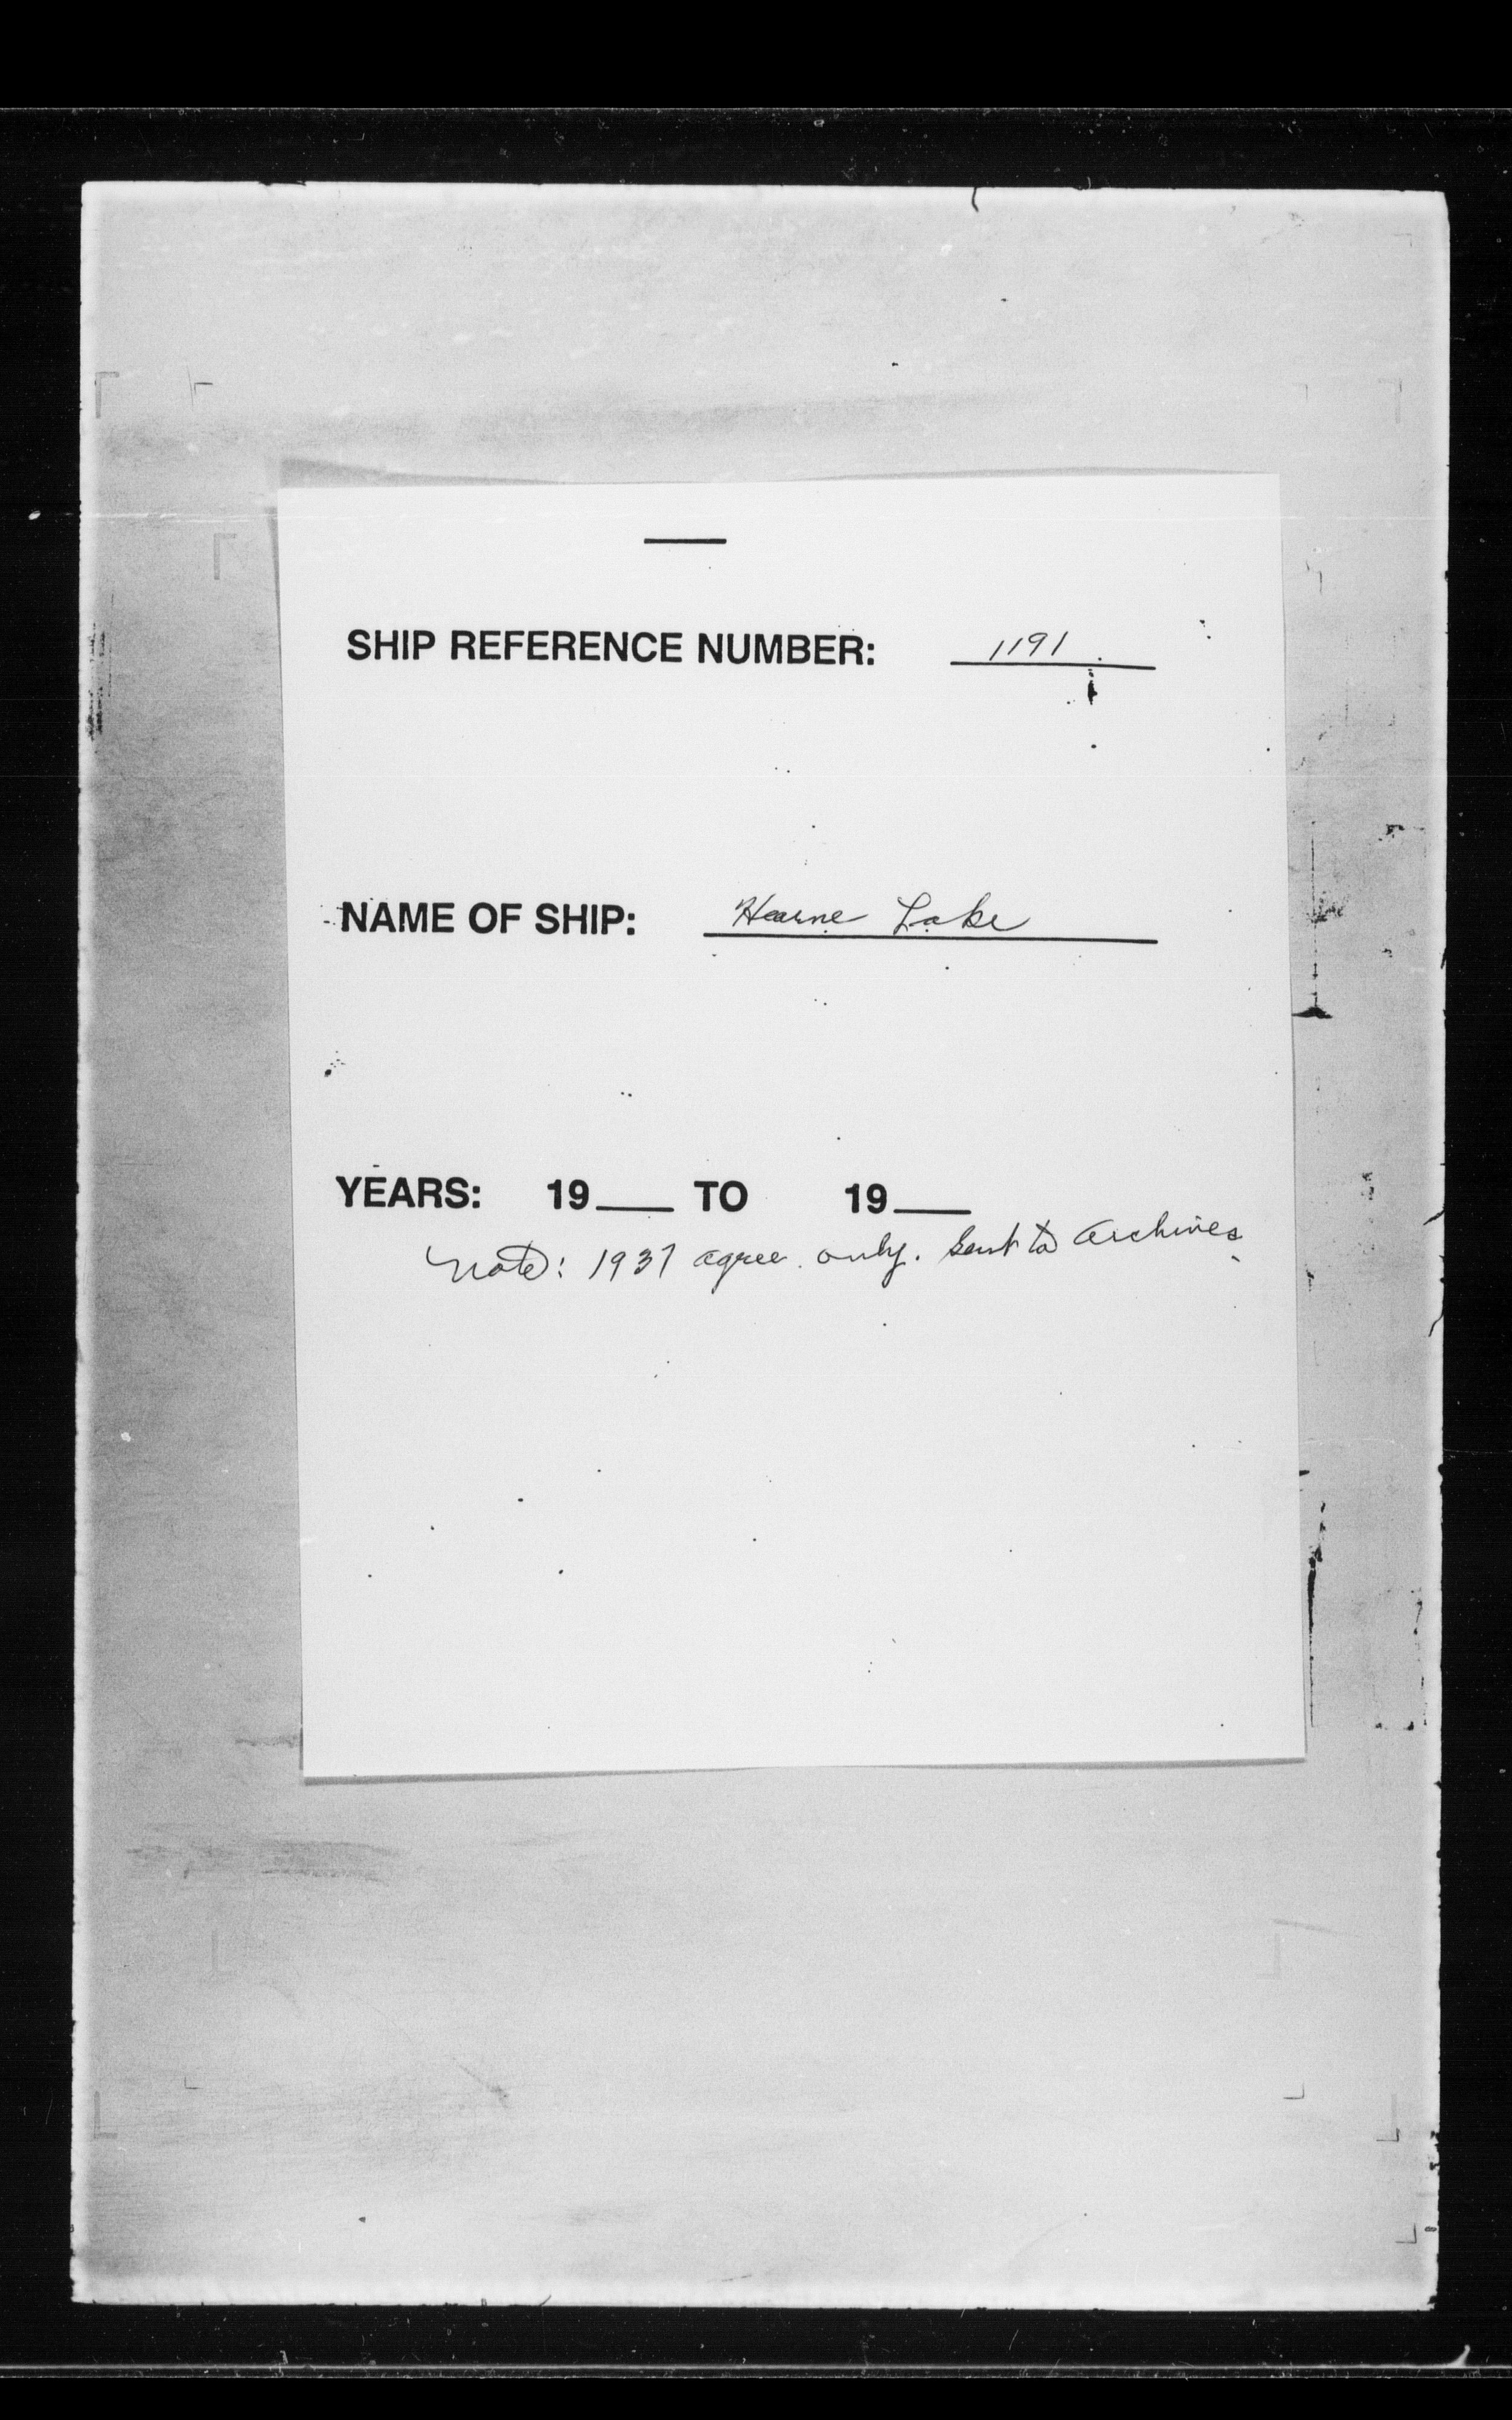 SHIP REFERENCE NUMBER: 1191
NAME OF SHIP: Hearne Lake
YEARS: 19___ TO 19___
Note: 1937 agree. only. Sent to Archives